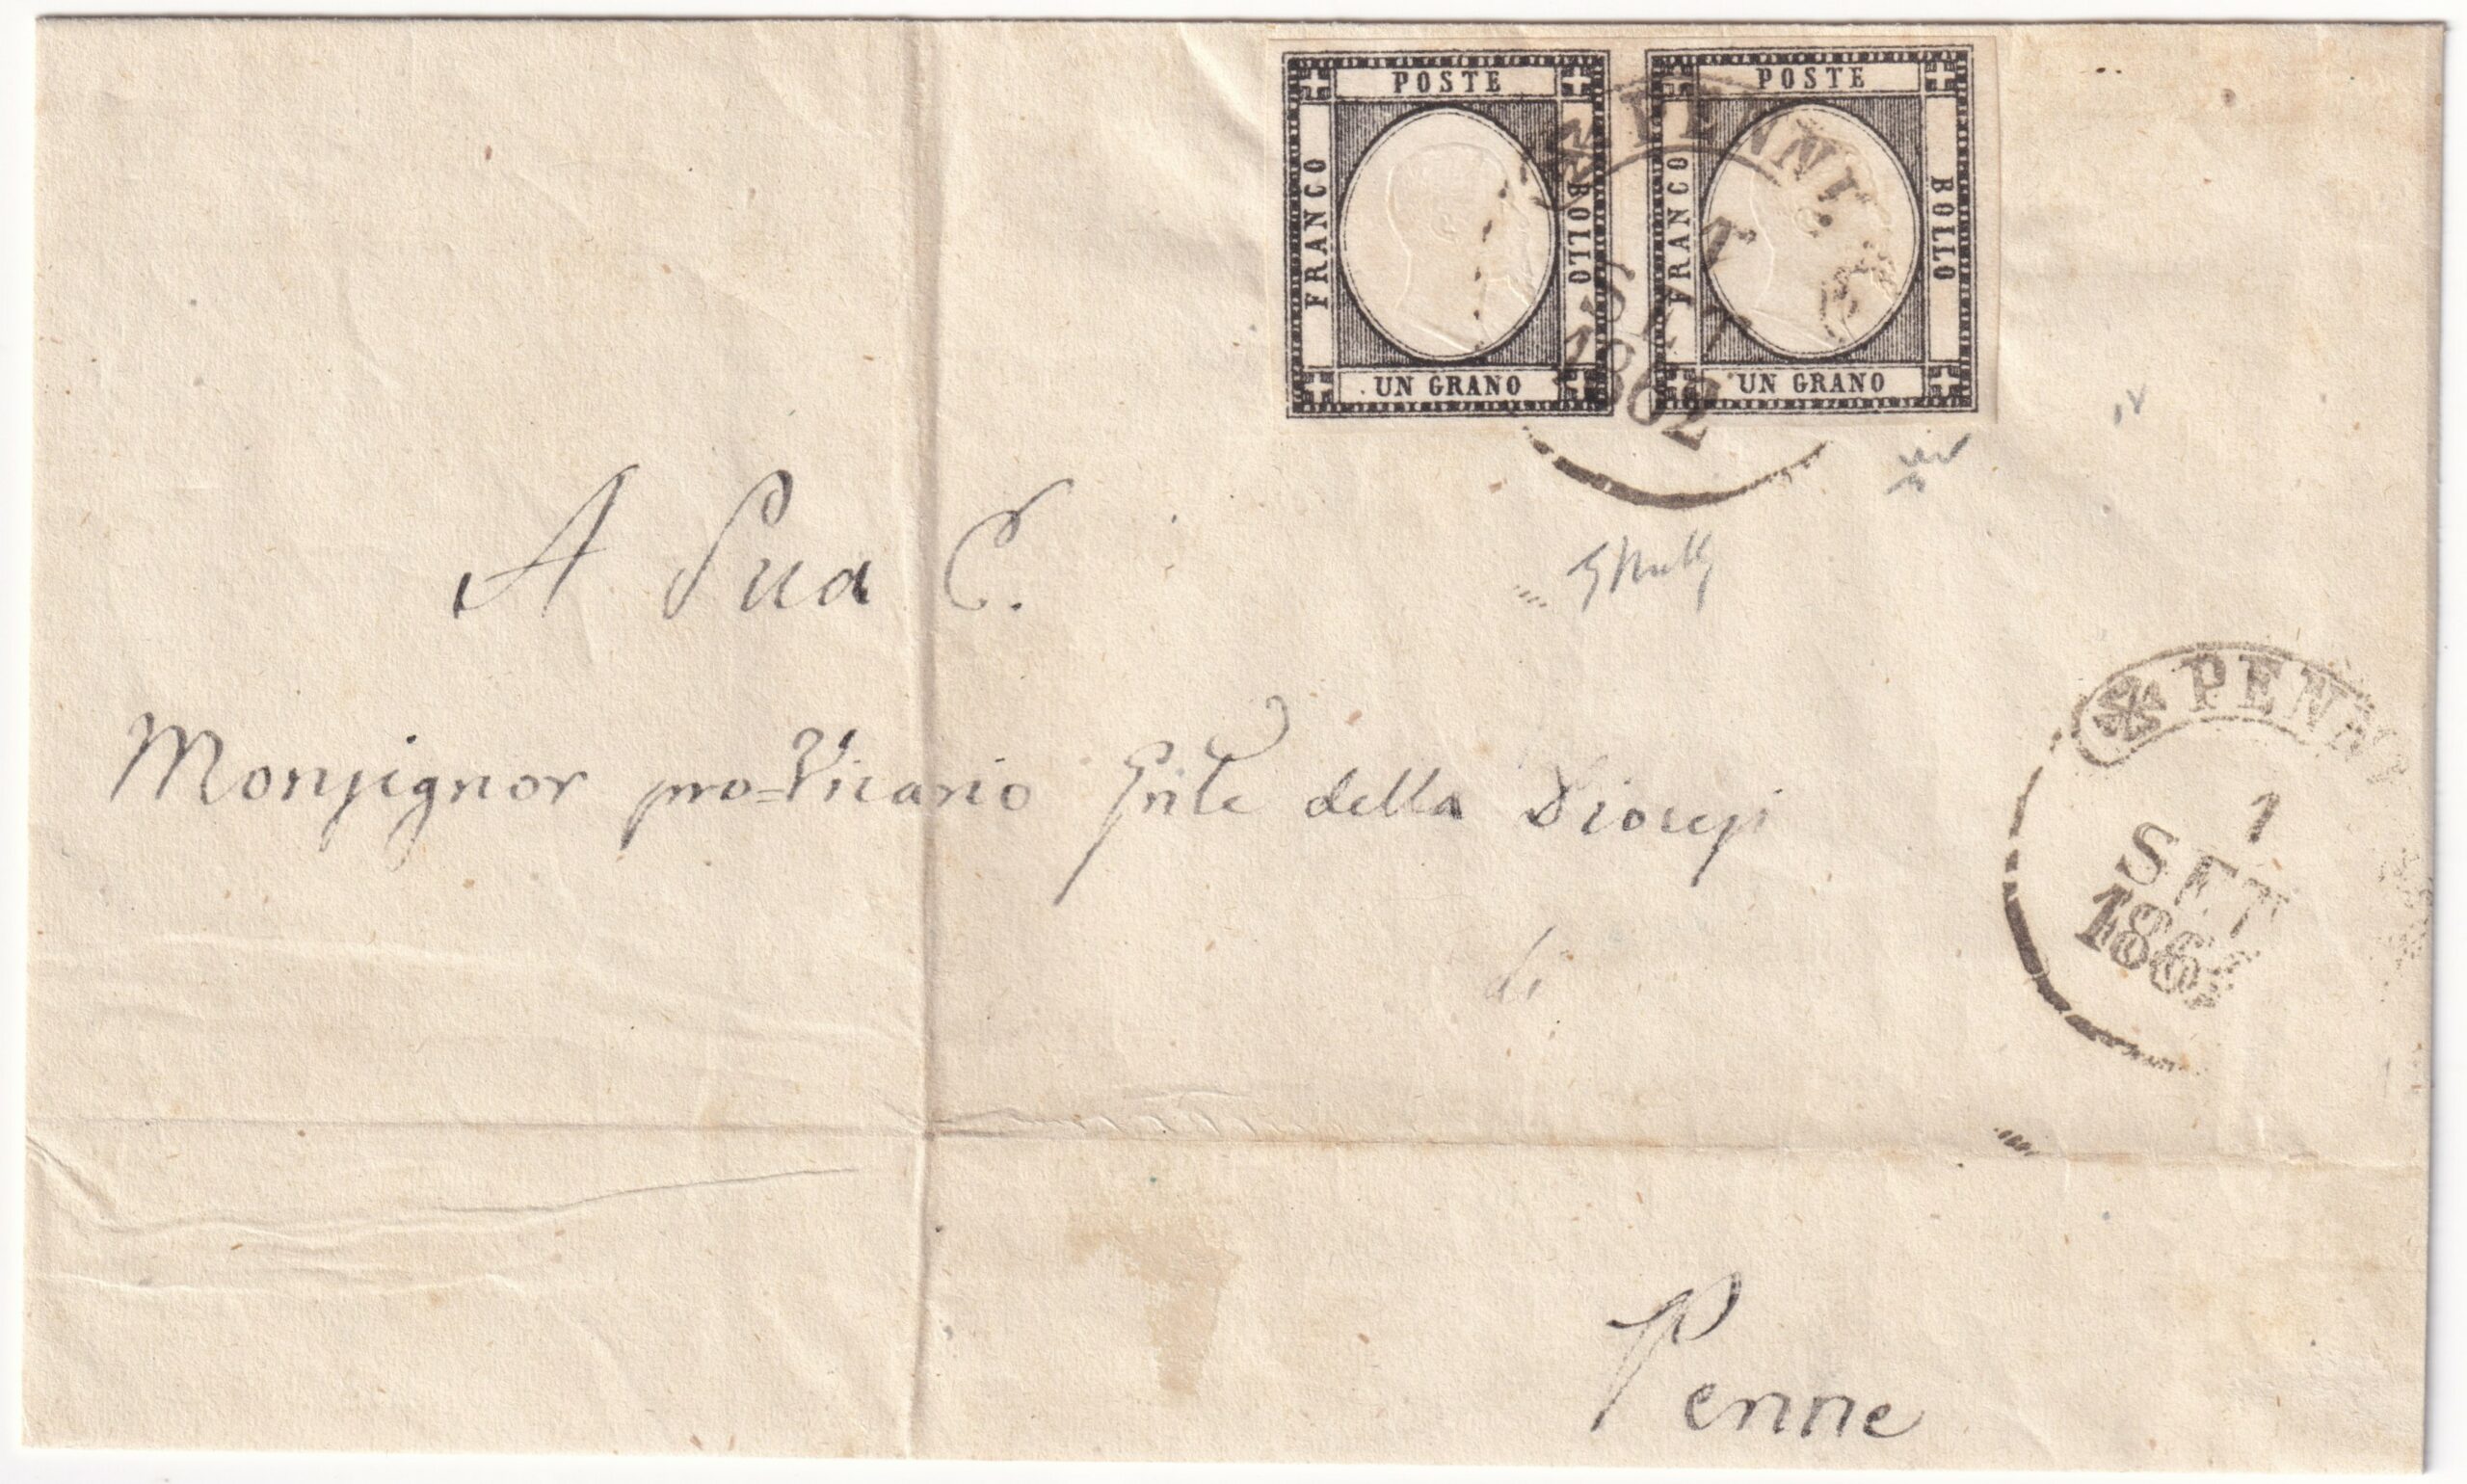 POSTE
FRANCO
BOLLO
UN GRANO
POSTE
FRANCO
BOLLO
UN GRANO
PENN
1
SET
1862
A Sua E.
Monsignor pro=Vicario Gnle della Diocesi
di
Penne
PENN
1
SET
186